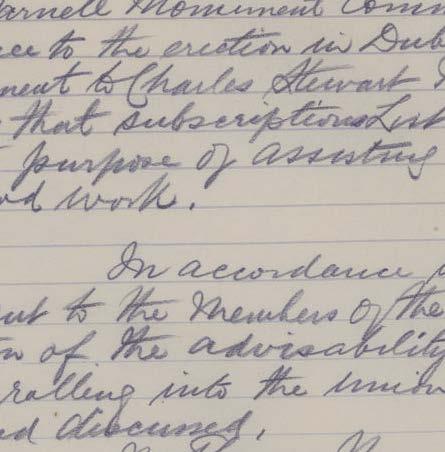 arnell Monument Comm
ce to the erection in Dub
ment to Charles Stewart
that subscriptions List
purpose of assisting
od work.
In accordance
ent to the Members of the
n of the advisability
rolling into the Union
ed discussed.